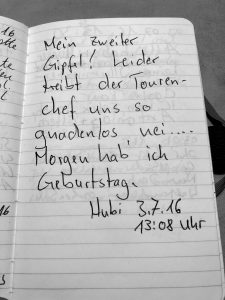 16
Mein zweiter
Gipfel! Leider
treibt der Touren-
chef uns so
gnadenlos nei....
Morgen hab' ich
Geburtstag.
Hubi 3.7.16
13:08 Uhr
16